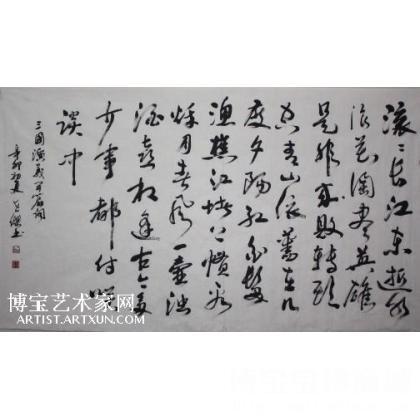 滚〻长江东逝水
浪花淘尽英雄
是非成败转头
空青山依旧在几
度夕阳红白发
渔樵江渚上惯看
秋月春风一壶浊
酒喜相逢古今多
少事都付笑
谈中
三國演义开篇词
辛卯初夏书
博宝艺术家网
ARTIST.ARTXUN.COM